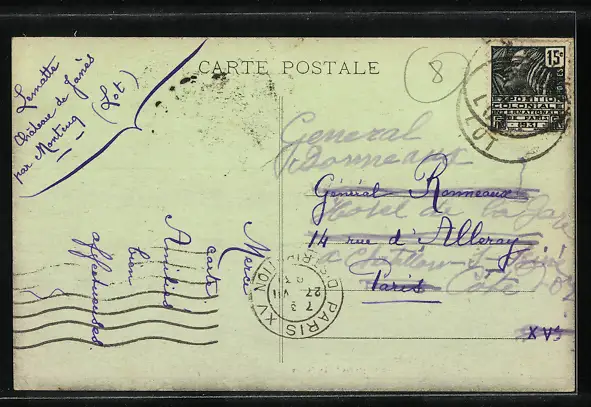 CARTE POSTALE
8
Lematte
Château de Janès
par Montcuq
(Lot)
15c
EXPOSITION
COLONIALE
INTERNATIONALE
PARIS
1931
LOT
General
Bonneaux
Général Bonneaux
Hotel de la Gare
14 rue d'Alleray
à Chatillon
Paris
Côte d'Or
XVe
Merci
carte
Amitiés
bien
affectueuses.
PARIS XV
DISTRIBUTION
7 3
27 VII